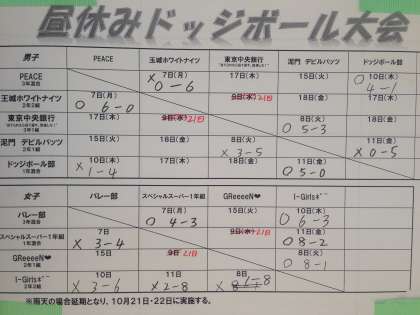 昼休みドッジボール大会
男子 PEACE 玉城ホワイトナイツ 東京中央銀行 泥門 デビルバッツ ドッジボール部
PEACE 3年混合 7日(月) 17日(木) 15日(火) 10日(木)
× 0-6 ○ 4-1
玉城ホワイトナイツ 2年2組 7日(月) 9日(水) 18日(金) 17日(木)
○ 6-0
東京中央銀行 3年1組 17日(木) 9日(水) 8日(火) 18日(金)
○ 5-3
泥門 デビルバッツ 2年1組 15日(火) 18日(金) 8日(火) 11日(金)
× 3-5 × 0-5
ドッジボール部 1年混合 10日(木) 17日(木) 18日(金) 11日(金)
× 1-4 ○ 5-0
女子 バレー部 スペシャルスーパー1年組 GReeeeN♥ I-Girls
バレー部 3年混合 7日(月) 15日(火) 10日(木)
○ 4-3 ○ 6-3
スペシャルスーパー1年組 1年混合 7日 9日(水) 11日(金)
× 3-4 ○ 8-2
GReeeeN♥ 2年1組 15日 9日 8日(火)
○ 8-1
I-Girls 2年2組 10日 11日 8日
× 3-6 × 2-8 × 1-8
※雨天の場合延期となり、10月21日・22日に実施する。